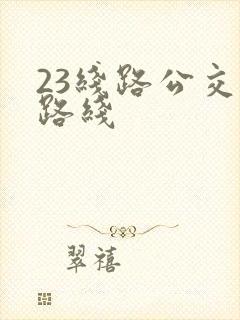 23线路公交
路线
翠禧